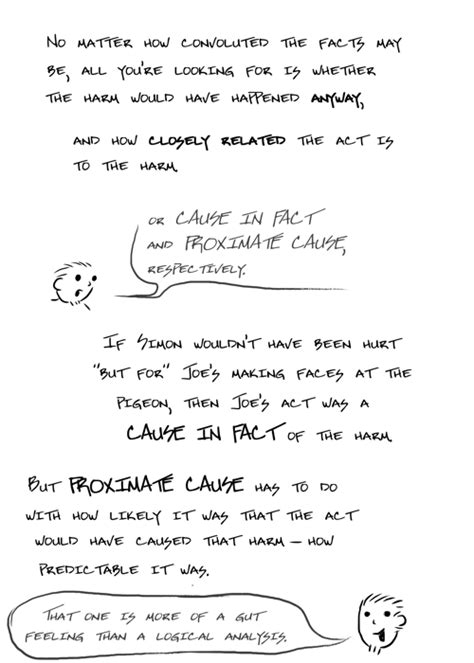 NO MATTER HOW CONVOLUTED THE FACTS MAY
BE, ALL YOU'RE LOOKING FOR IS WHETHER
THE HARM WOULD HAVE HAPPENED ANYWAY,
AND HOW CLOSELY RELATED THE ACT IS
TO THE HARM.
OR CAUSE IN FACT
AND PROXIMATE CAUSE,
RESPECTIVELY.
IF SIMON WOULDN'T HAVE BEEN HURT
"BUT FOR" JOE'S MAKING FACES AT THE
PIGEON, THEN JOE'S ACT WAS A
CAUSE IN FACT OF THE HARM.
BUT PROXIMATE CAUSE HAS TO DO
WITH HOW LIKELY IT WAS THAT THE ACT
WOULD HAVE CAUSED THAT HARM — HOW
PREDICTABLE IT WAS.
THAT ONE IS MORE OF A GUT
FEELING THAN A LOGICAL ANALYSIS.